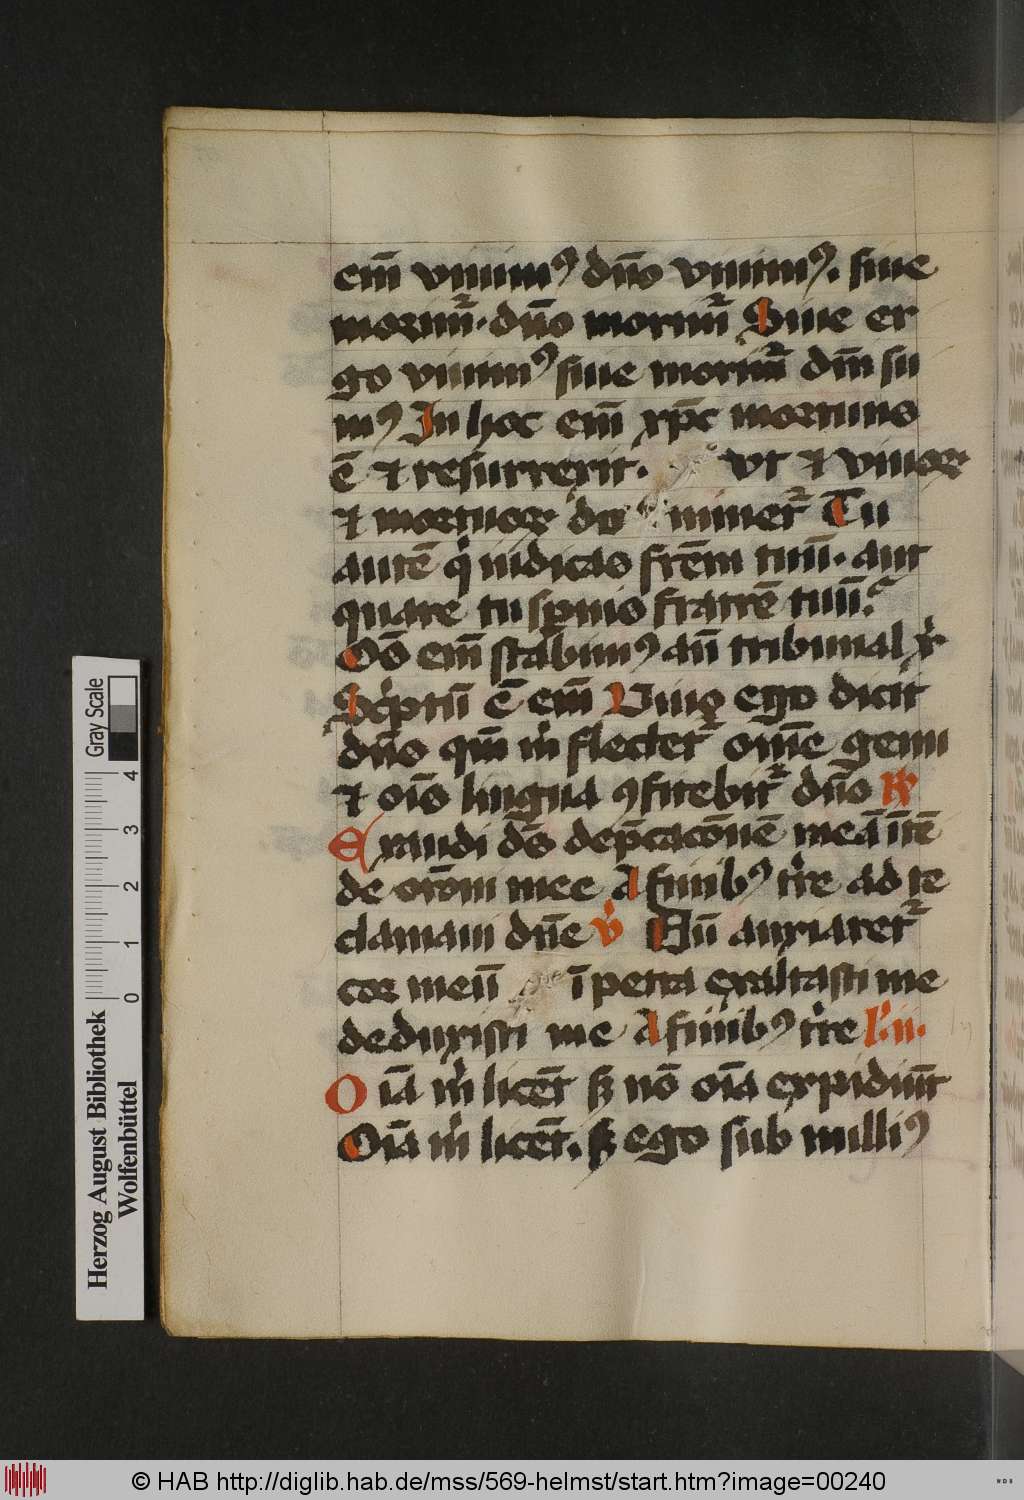 em̄ viuimꝰ dn̄o viuimꝰ. siue
morimr̄. dn̄o morimr̄ Siue er
go viuimꝰ siue morimr̄ dn̄i su
mꝰ In hoc em̄ xp̄c mortuus
ē ⁊ resurrexit. vt ⁊ viuoꝝ
⁊ mortuoꝝ do minet᷑ Tu
autē qͥ iudicas frēm tuū. aut
quare tu spnis fratrē tuū?
Oēs em̄ stabimꝰ an̄ tribunal xͥ
Scͥptū ē em̄ Viuo ego dicit
dn̄s qm̄ mͥ flectet᷑ om̄e genu
⁊ oīs lingua ꝯfitebit᷑ dn̄o R̸
Exaudi ds̄ dep̄cacōnē meā ītē
de orōni mee A finibꝰ tr̄re ad te
clamaui dn̄e v̄ Dū anxiaret᷑
cor meū ī petra exaltasti me
deduxisti me A finibꝰ tr̄re l̄. ii.
Oīa mͥ licēt sꝫ nō oīa expidiūt
Oīa mͥ licēt. sꝫ ego sub nulliꝰ
Herzog August Bibliothek
Wolfenbüttel
0 1 2 3 4
Gray Scale
© HAB http://diglib.hab.de/mss/569-helmst/start.htm?image=00240